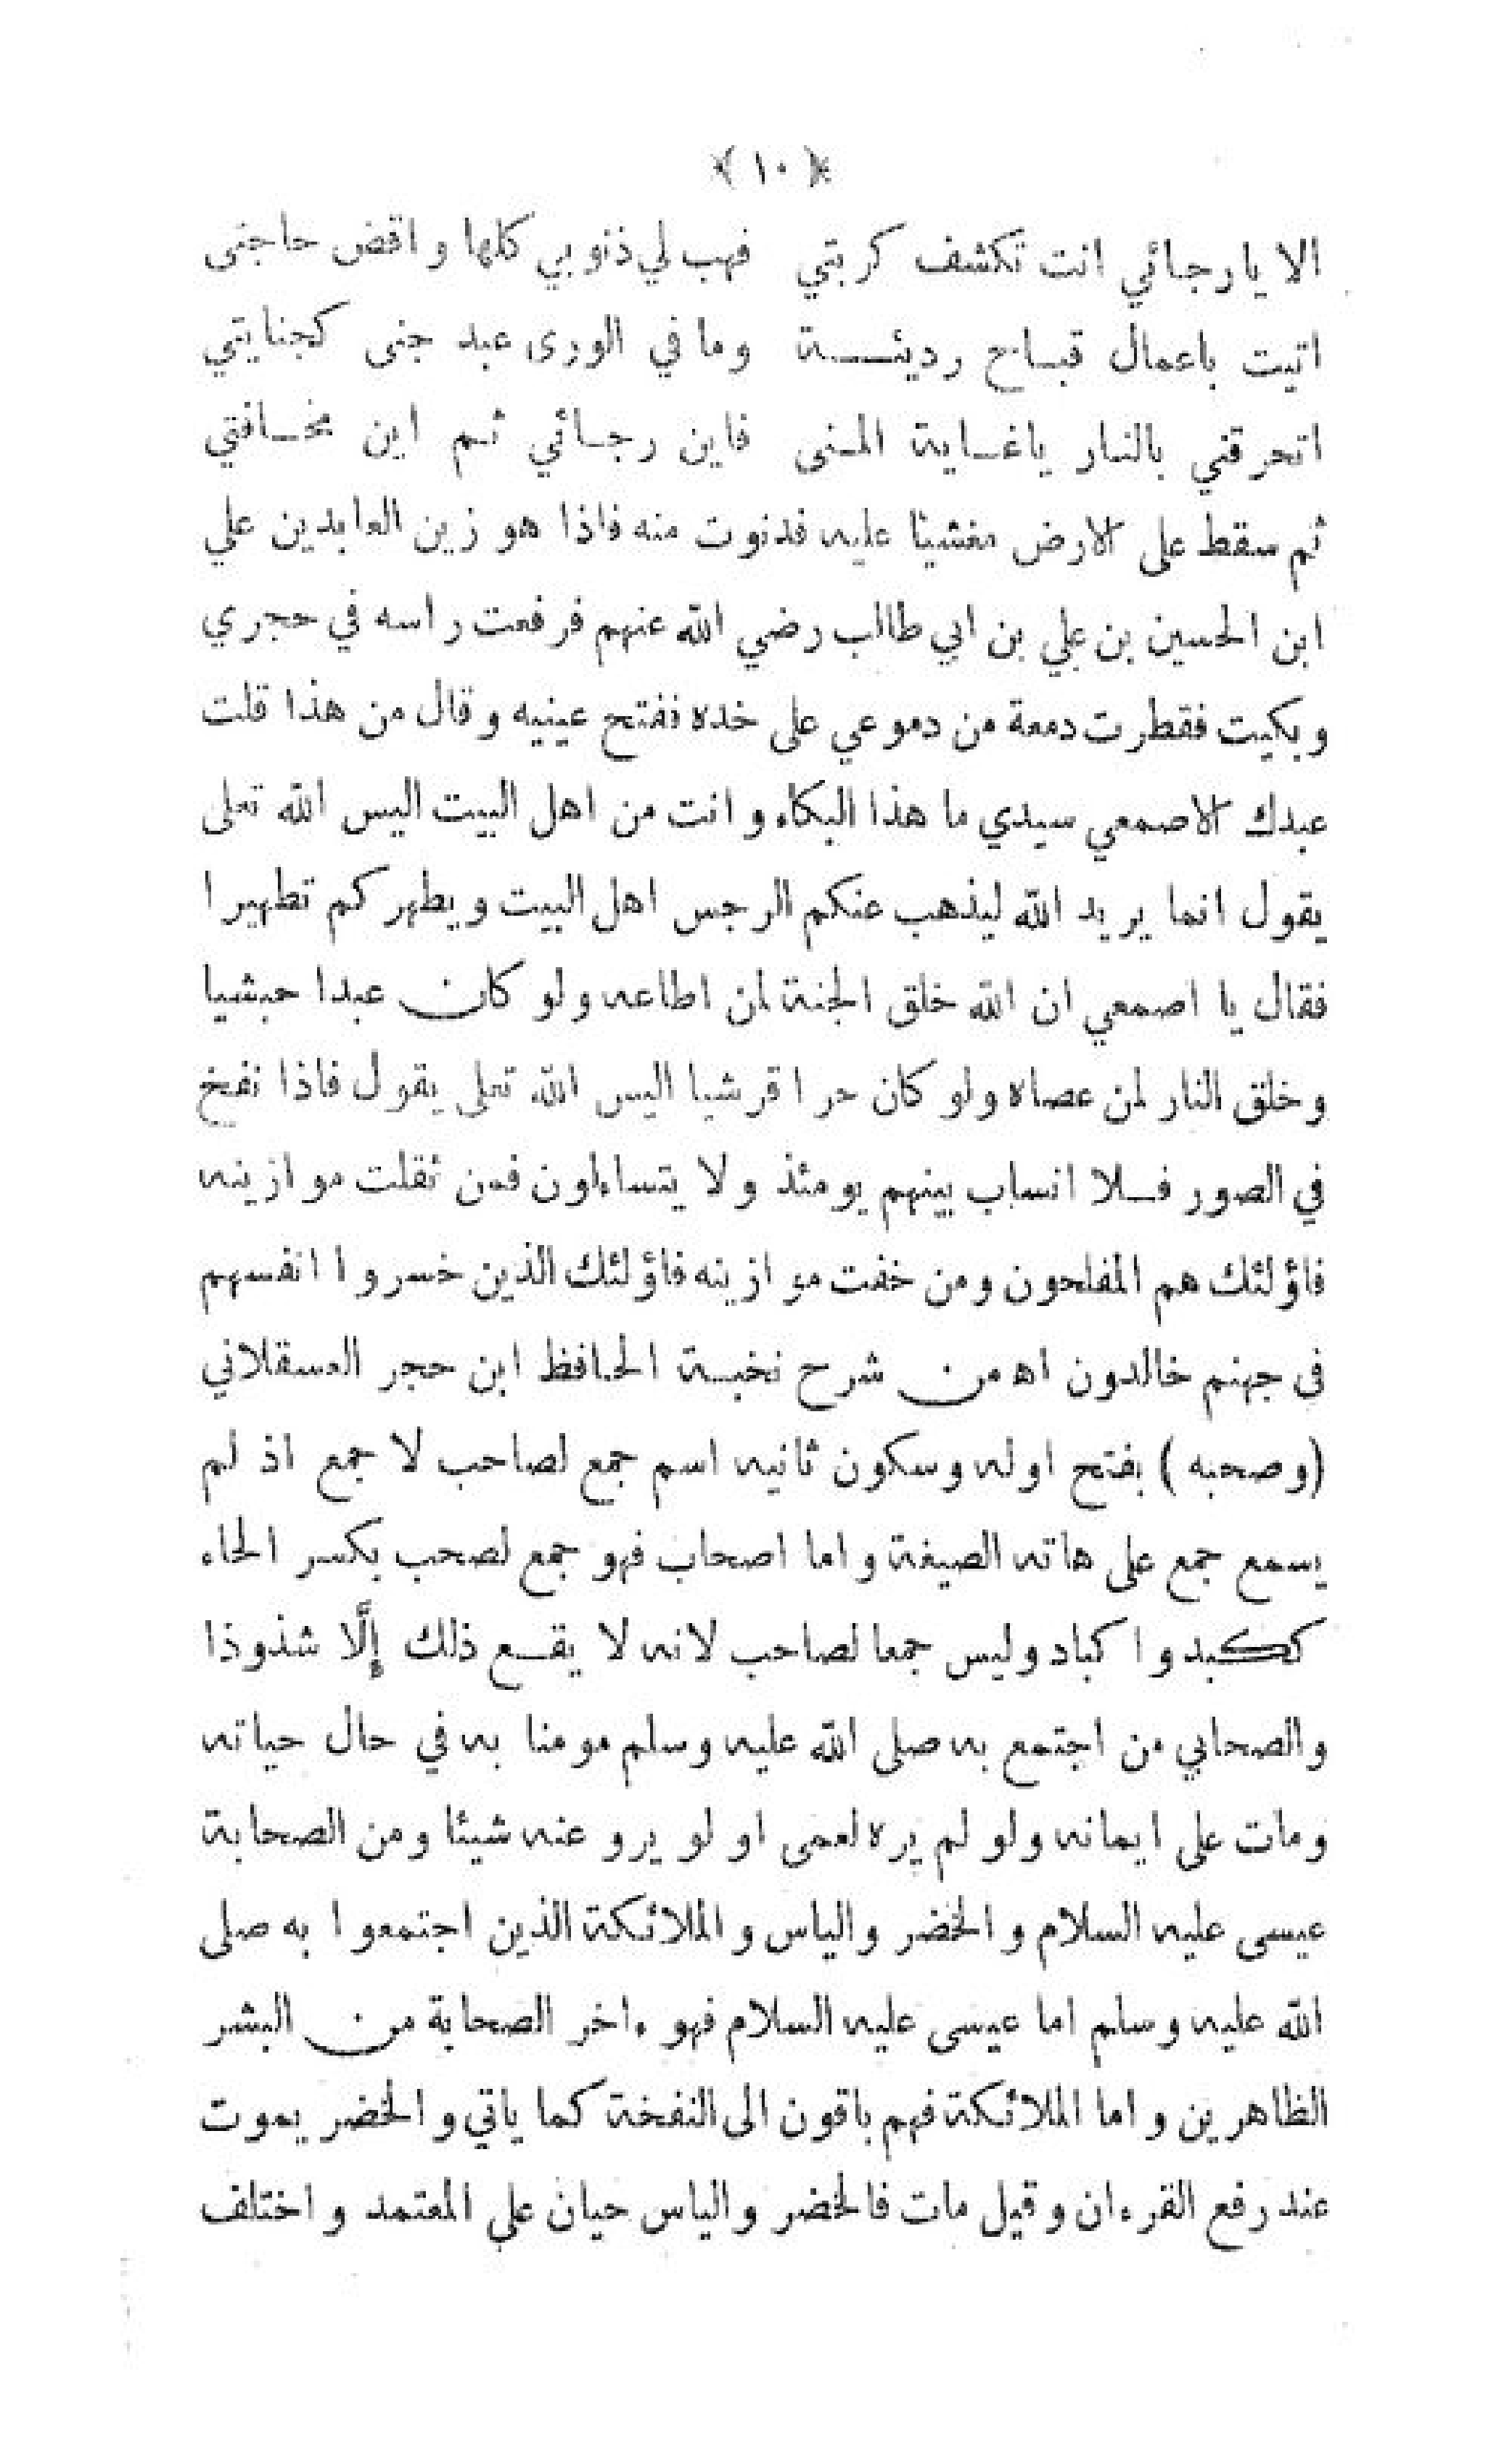 ﴿ ١٠ ﴾
الا يا رجائي انت تكشف كربتي فهب لي ذنوبي كلها واقض حاجتى
اتيت باعمال قباح رديئة وما في الورى عبد جنى كجنايتي
اتحرقني بالنار ياغاية المنى فاين رجائي ثم اين مخافتي
ثم سقط على الارض مغشيا عليه فدنوت منه فاذا هو زين العابدين علي
ابن الحسين بن علي بن ابي طالب رضي الله عنهم فرفعت راسه في حجري
وبكيت فقطرت دمعة من دموعي على خده ففتح عينيه وقال من هذا قلت
عبدك الاصمعي سيدي ما هذا البكاء وانت من اهل البيت اليس الله تعلى
يقول انما يريد الله ليذهب عنكم الرجس اهل البيت ويطهركم تطهيرا
فقال يا اصمعي ان الله خلق الجنة لمن اطاعه ولو كان عبدا حبشيا
وخلق النار لمن عصاه ولو كان حرا قرشيا اليس الله تعلى يقول فاذا نفخ
في الصور فلا انساب بينهم يومئذ ولا يتساءلون فمن ثقلت موازينه
فاؤلئك هم المفلحون ومن خفت موازينه فاؤلئك الذين خسروا انفسهم
فى جهنم خالدون اه من شرح نخبة الحافظ ابن حجر العسقلاني
(وصحبه) بفتح اوله وسكون ثانيه اسم جمع لصاحب لا جمع اذ لم
يسمع جمع على هاته الصيغة واما اصحاب فهو جمع لصحب بكسر الحاء
ككبد واكباد وليس جمعا لصاحب لانه لا يقع ذلك إلَّا شذوذا
والصحابي من اجتمع به صلى الله عليه وسلم مومنا به في حال حياته
ومات على ايمانه ولو لم يره لعمى او لو يرو عنه شيئا ومن الصحابة
عيسى عليه السلام والخضر والياس والملائكة الذين اجتمعوا به صلى
الله عليه وسلم اما عيسى عليه السلام فهو ءاخر الصحابة من البشر
الظاهرين واما الملائكة فهم باقون الى النفخة كما ياتي والخضر يموت
عند رفع القرءان وقيل مات فالخضر والياس حيان على المعتمد واختلف